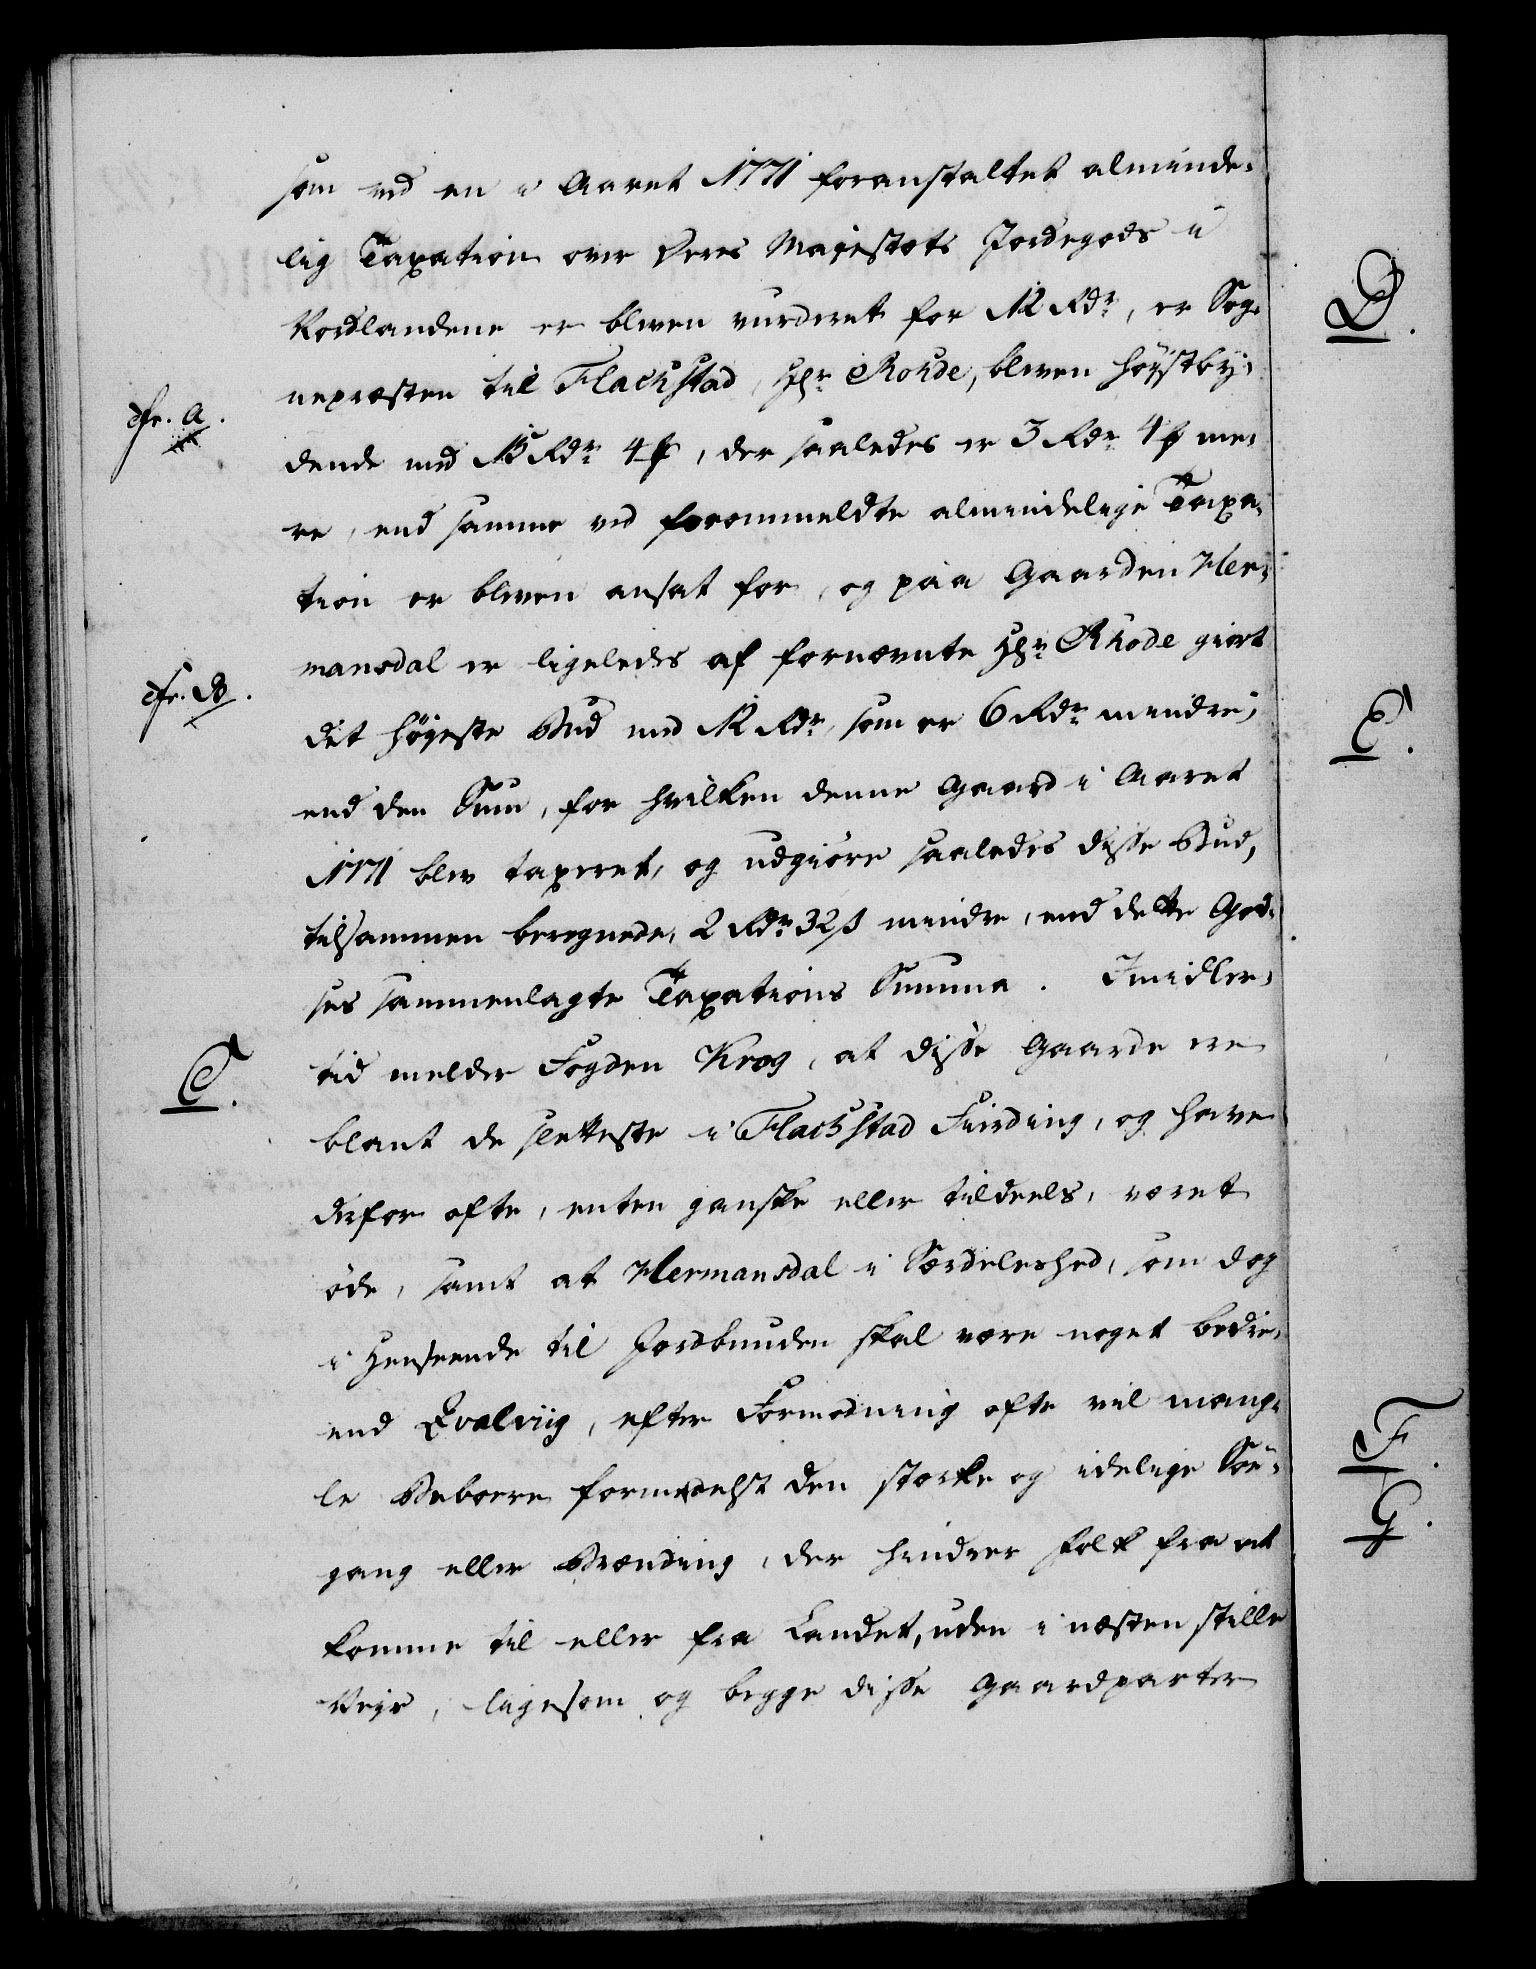 som ved en i Aaret 1771 foranstaltet alminde-
lig Taxation over Deres Majestæts Jordegods i
Nordlandene er bleven vurderet for 12 Rdr, er Sog-
nepræsten til Flachstad, Hr Rohde, bleven høystby-
cfr. A.
dende med 15 Rdr 4 ß, der saaledes er 3 Rdr 4 ß me-
re, end samme ved forommeldte almindelige Taxa-
tion er bleven ansat for, og paa Gaarden Her-
mansdal er ligeledes af fornævnte Hr Rhode giort
cfr. B.
det høyeste Bud med 12 Rdr, som er 6 Rdr mindre,
end den Sum, for hvilken denne Gaard i Aaret
1771 blev taxeret, og udgiøre saaledes disse Bud,
tilsammen beregnede, 2 Rdr 32 ß mindre, end dette God-
ses sammenlagte Taxations Summa. Imidler-
tid melder Fogden Krog, at disse Gaarde ere
C.
blant de sletteste i Flachstad Fiirding, og have
derfor ofte, enten ganske eller tildeels, været
øde, samt at Hermansdal i Særdeleshed, som dog
i Henseende til Jordbunden skal være noget bedre,
end Qvalviig, efter Formodning ofte vil mang-
le Beboere formedelst den stærke og idelige Søe-
gang eller Brænding, der hindrer Folk fra at
komme til eller fra Landet, uden i næsten stille
Veyr, ligesom og begge disse Gaardparter
D.
E.
F.
G.